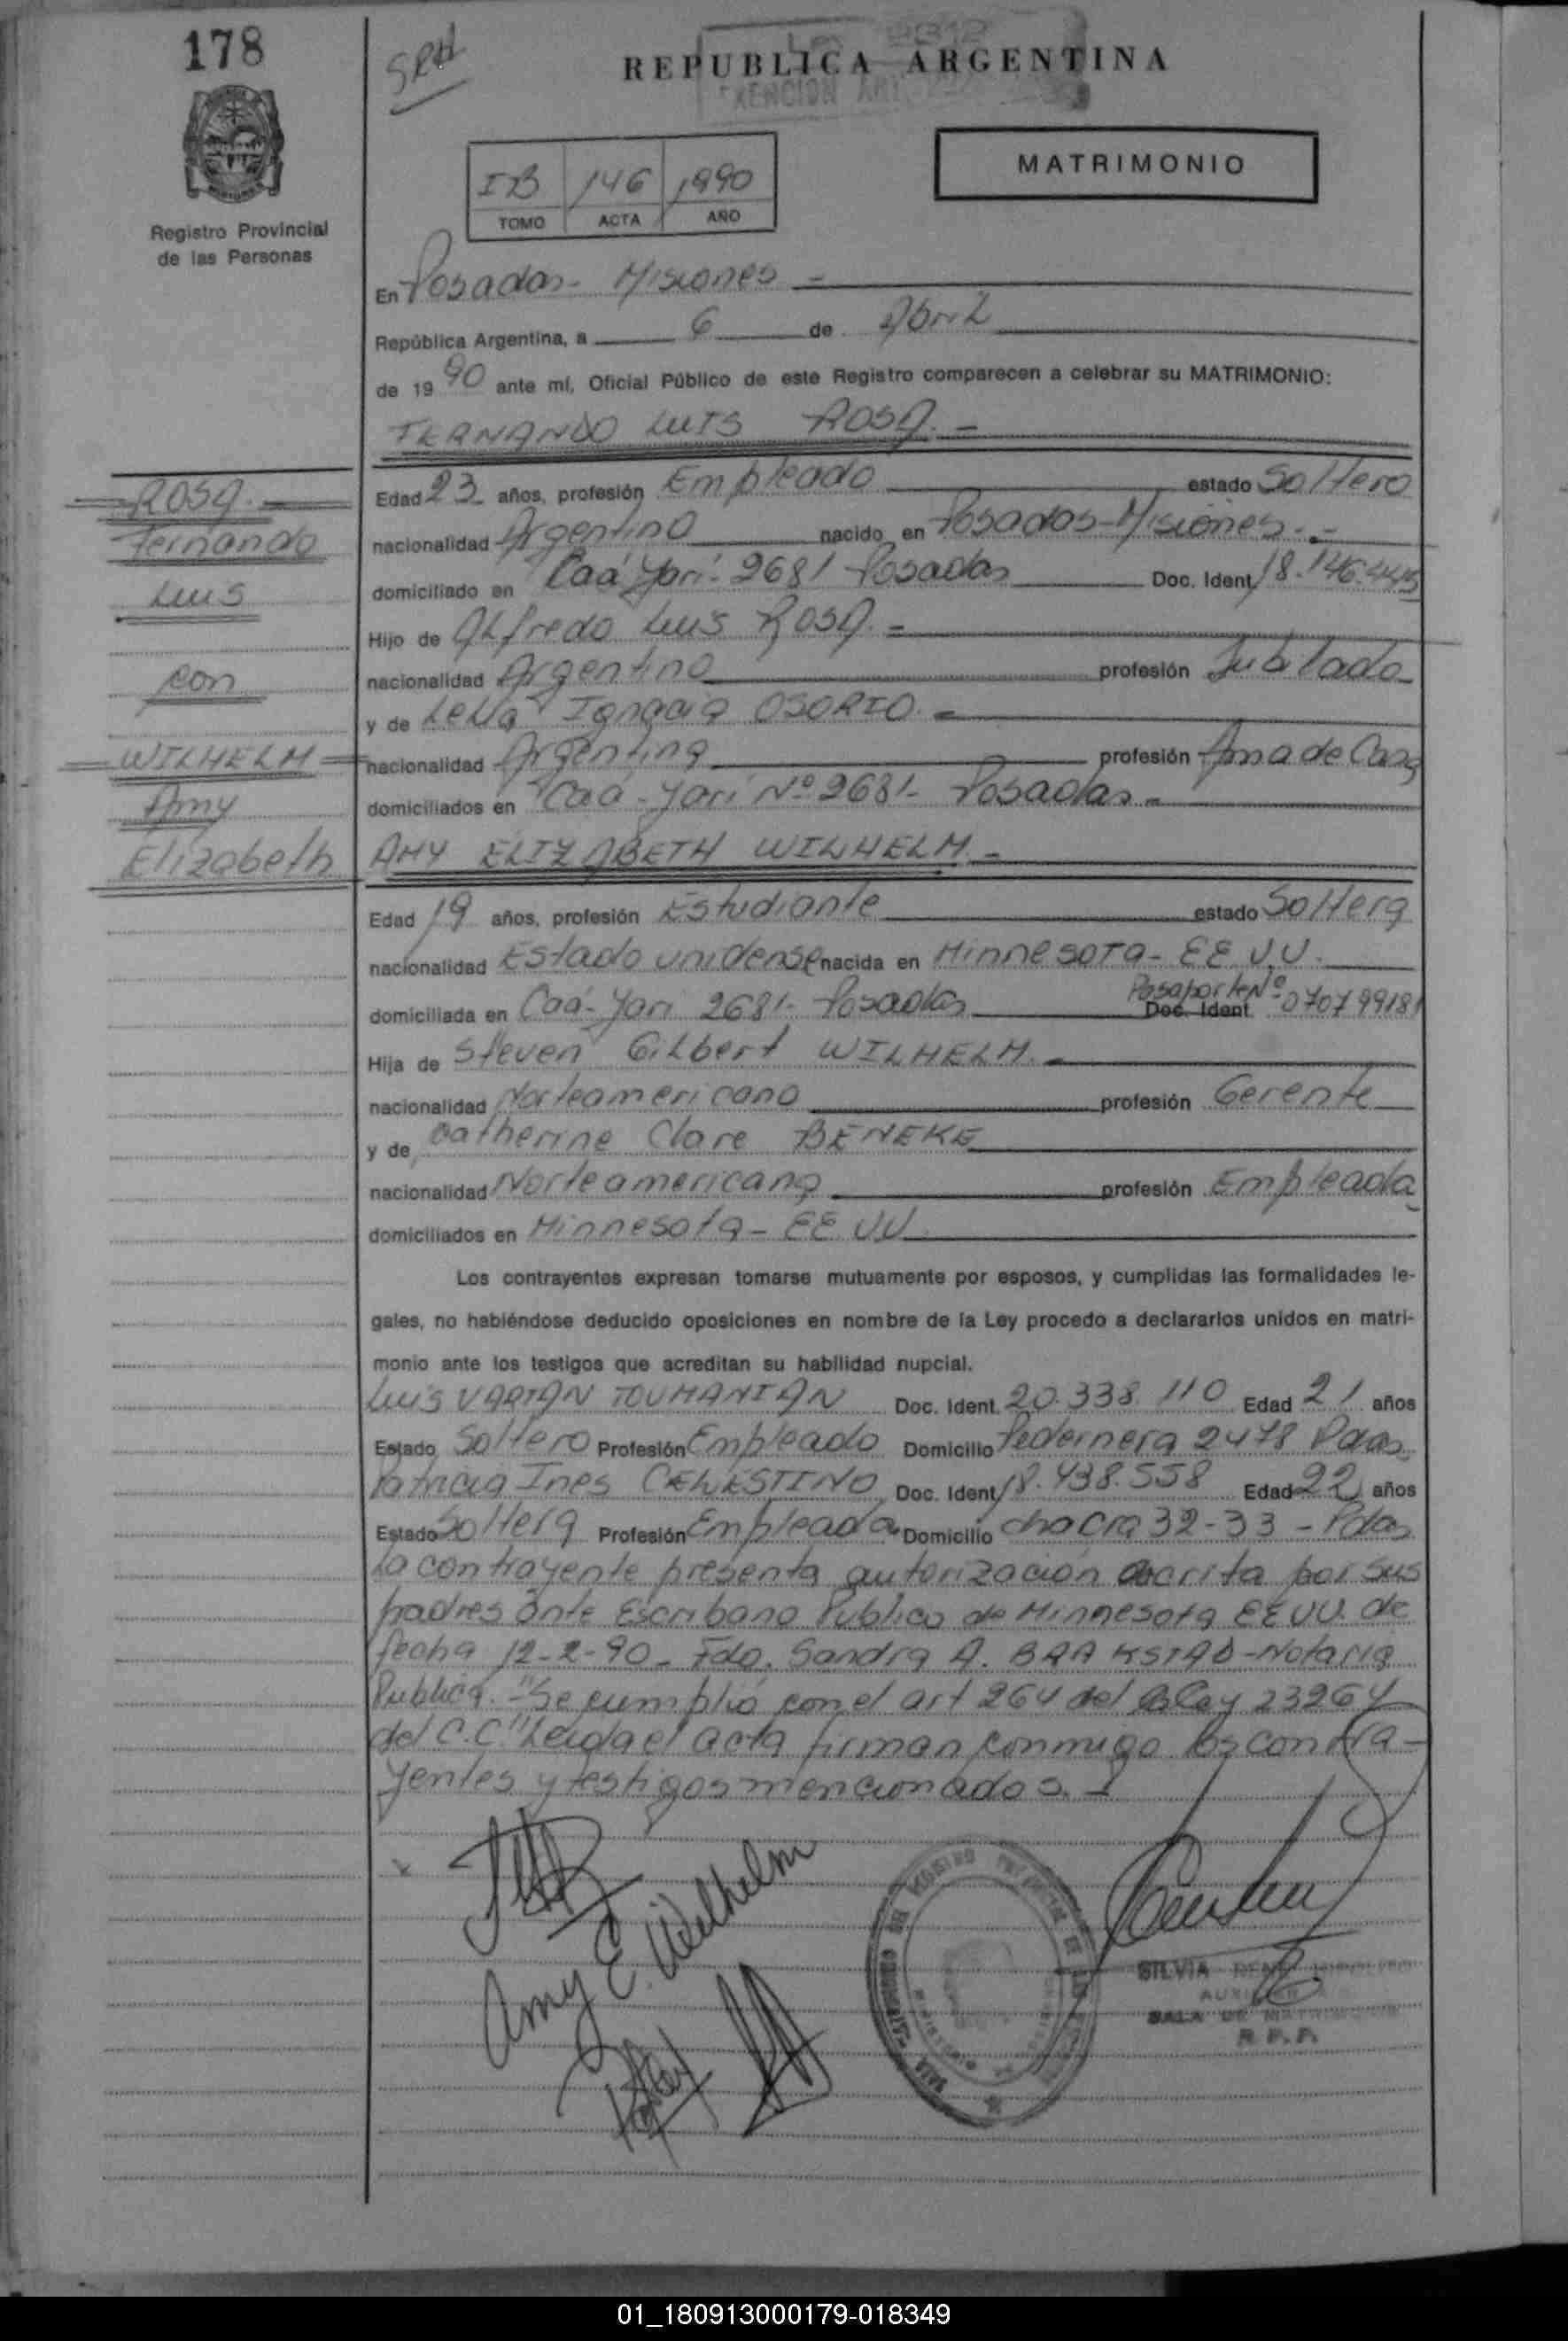 178
REPUBLICA ARGENTINA
MATRIMONIO
IB 146 1990
TOMO ACTA AÑO
Registro Provincial
de las Personas
En Posadas - Misiones -
República Argentina, a 6 de Abril
de 1990 ante mí, Oficial Público de este Registro comparecen a celebrar su MATRIMONIO:
FERNANDO LUIS ROSA. -
ROSA.
Fernando
Luis
con
WILHELM
Amy
Elizabeth
Edad 23 años, profesión Empleado estado Soltero
nacionalidad Argentino nacido en Posadas - Misiones. -
domiciliado en Caá Yarí - 2681 Posadas Doc. Ident. 18.146.445
Hijo de Alfredo Luis ROSA. -
nacionalidad Argentino profesión Jubilado
y de Ignacia OSORIO. -
nacionalidad Argentina profesión Ama de Casa
domiciliados en Caá - Yarí Nº 2681 - Posadas -
AMY ELIZABETH WILHELM. -
Edad 19 años, profesión Estudiante estado Soltera
nacionalidad Estado unidense nacida en Minnesota - EE UU.
domiciliada en Caá - Yarí 2681 - Posadas Pasaporte Nº Doc. Ident. 070799181
Hija de Steven Gilbert WILHELM. -
nacionalidad Norteamericano profesión Gerente
y de Catherine Clare BENEKE
nacionalidad Norteamericana profesión Empleada
domiciliados en Minnesota - EE UU
Los contrayentes expresan tomarse mutuamente por esposos, y cumplidas las formalidades le-
gales, no habiéndose deducido oposiciones en nombre de la Ley procedo a declararlos unidos en matri-
monio ante los testigos que acreditan su habilidad nupcial.
Luis VARTAN TOUMANIAN Doc. Ident. 20.338.110 Edad 21 años
Estado Soltero Profesión Empleado Domicilio Pedernera 2478 Pdas.
Patricia Ines CELESTINO Doc. Ident. 18.438.558 Edad 22 años
Estado Soltera Profesión Empleada Domicilio chacra 32-33 - Pdas
La contrayente presenta autorización escrita por sus
padres ante Escribano Publico de Minnesota EE UU. de
fecha 12-2-90 - Fdo. Sandra A. BRAKSTAD - Notaria
Publica. - "Se cumplió con el art 264 del Ley 23264
del C.C." Leida el acta firman conmigo los contra-
yentes y testigos mencionados. -
Amy E. Wilhelm
SILVIA
SALA DE MATRIMONIOS
R. P. P.
01_180913000179-018349